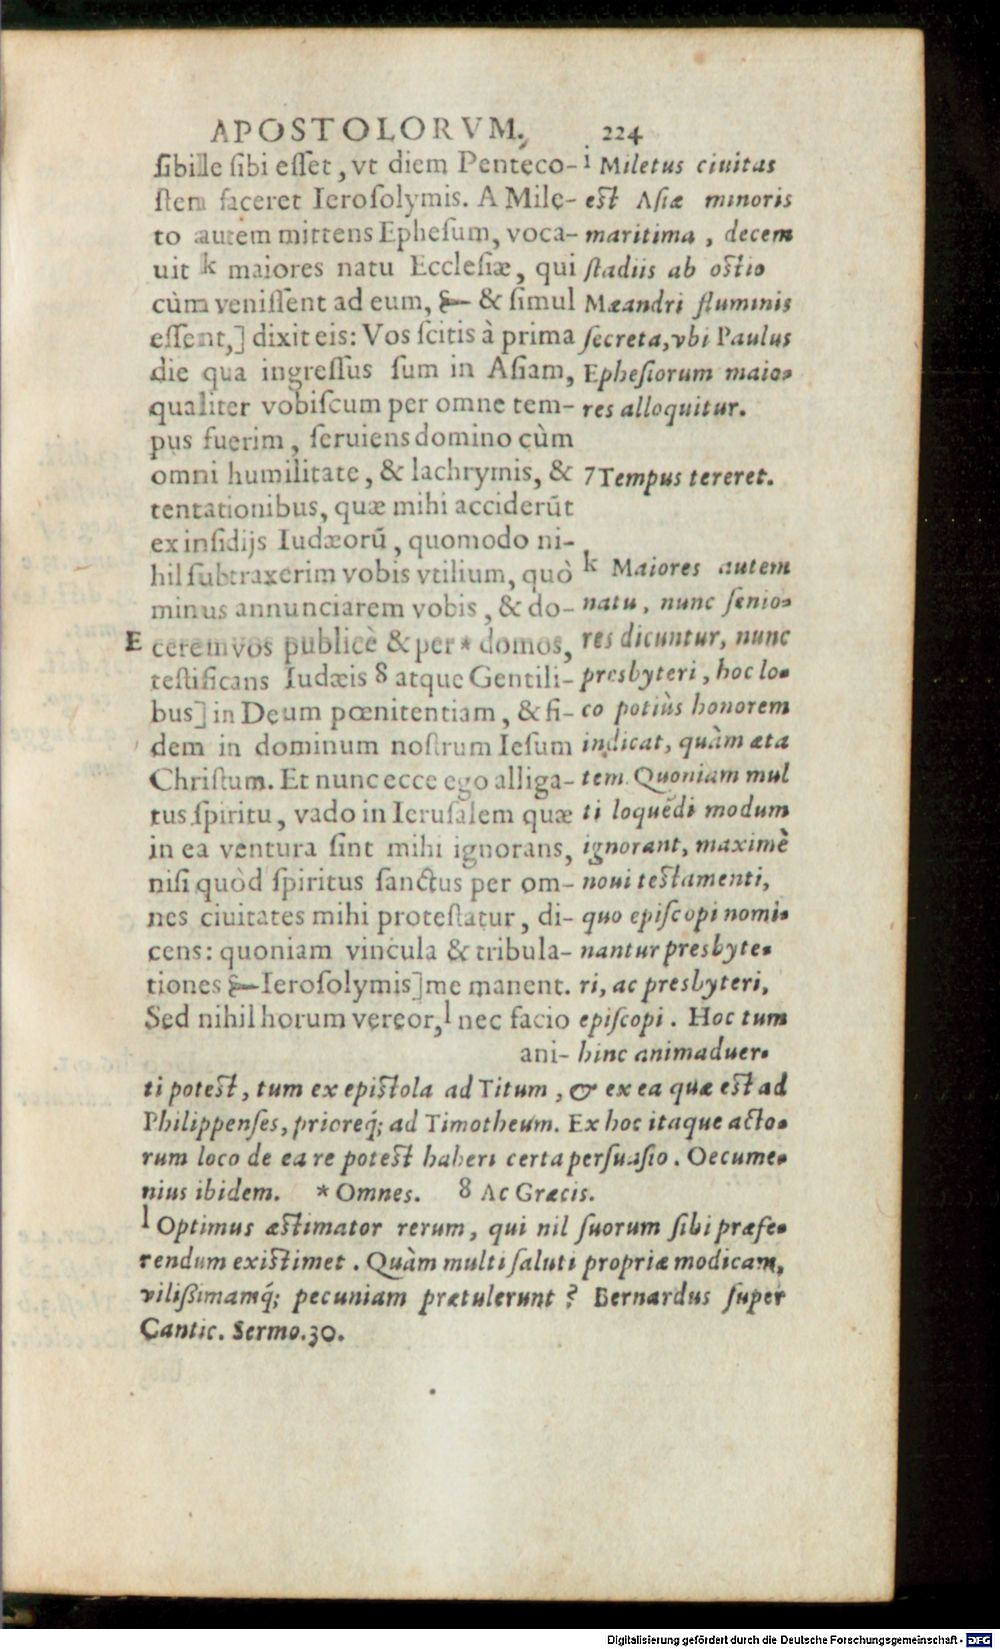 APOSTOLORVM. 224
sibille sibi esset, vt diem Penteco-
stem faceret Ierosolymis. A Mile-
to autem mittens Ephesum, voca-
uit k maiores natu Ecclesiæ, qui
cùm venissent ad eum, & simul
essent,] dixit eis: Vos scitis à prima
die qua ingressus sum in Asiam,
qualiter vobiscum per omne tem-
pus fuerim, seruiens domino cùm
omni humilitate, & lachrymis, &
tentationibus, quæ mihi acciderũt
ex insidijs Iudæorũ, quomodo ni-
hil subtraxerim vobis vtilium, quò
minus annunciarem vobis, & do-
E cerem vos publicè & per * domos,
testificans Iudæis 8 atque Gentili-
bus] in Deum pœnitentiam, & fi-
dem in dominum nostrum Iesum
Christum. Et nunc ecce ego alliga-
tus spiritu, vado in Ierusalem quæ
in ea ventura sint mihi ignorans,
nisi quòd spiritus sanctus per om-
nes ciuitates mihi protestatur, di-
cens: quoniam vincula & tribula-
tiones Ierosolymis] me manent.
Sed nihil horum vereor, l nec facio
ani-
i Miletus ciuitas
est Asiæ minoris
maritima, decem
stadiis ab ostio
Mæandri fluminis
secreta, vbi Paulus
Ephesiorum maio-
res alloquitur.
7 Tempus tereret.
k Maiores autem
natu, nunc senio-
res dicuntur, nunc
presbyteri, hoc lo-
co potiùs honorem
indicat, quàm æta
tem. Quoniam mul
ti loquẽdi modum
ignorant, maximè
noui testamenti,
quo episcopi nomi-
nantur presbyte-
ri, ac presbyteri,
episcopi. Hoc tum
hinc animaduer-
ti potest, tum ex epistola ad Titum, & ex ea quæ est ad
Philippenses, prioreq́; ad Timotheum. Ex hoc itaque acto-
rum loco de ea re potest haberi certa persuasio. Oecume-
nius ibidem. * Omnes. 8 Ac Græcis.
l Optimus æstimator rerum, qui nil suorum sibi præfe-
rendum existimet. Quàm multi saluti propriæ modicam,
vilißimamq́; pecuniam prætulerunt? Bernardus super
Cantic. Sermo. 30.
Digitalisierung gefördert durch die Deutsche Forschungsgemeinschaft - DFG